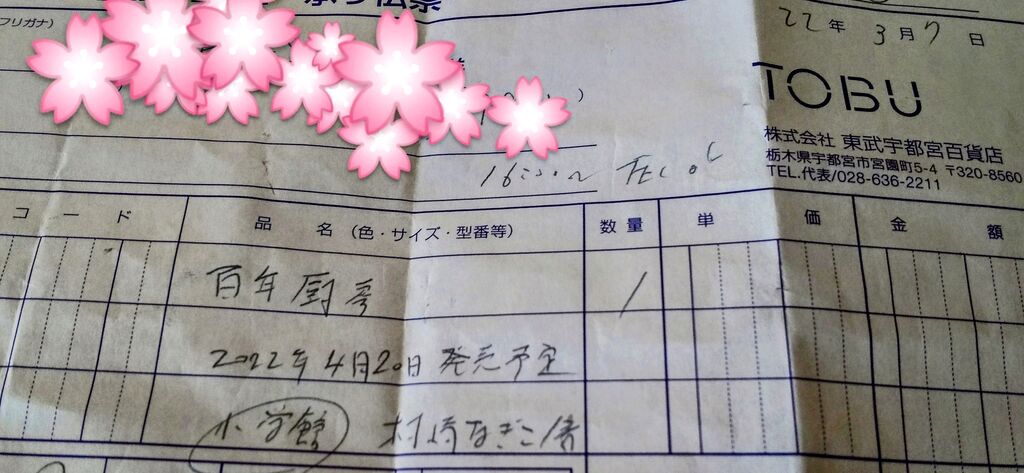 フリガナ)
22年3月7日
TOBU
株式会社 東武宇都宮百貨店
栃木県宇都宮市宮園町5-4 〒320-8560
TEL.代表/028-636-2211
コード 品名(色・サイズ・型番等) 数量 単価 金額
百年厨房 1
2022年4月20日 発売予定
小学館 村崎なぎこ